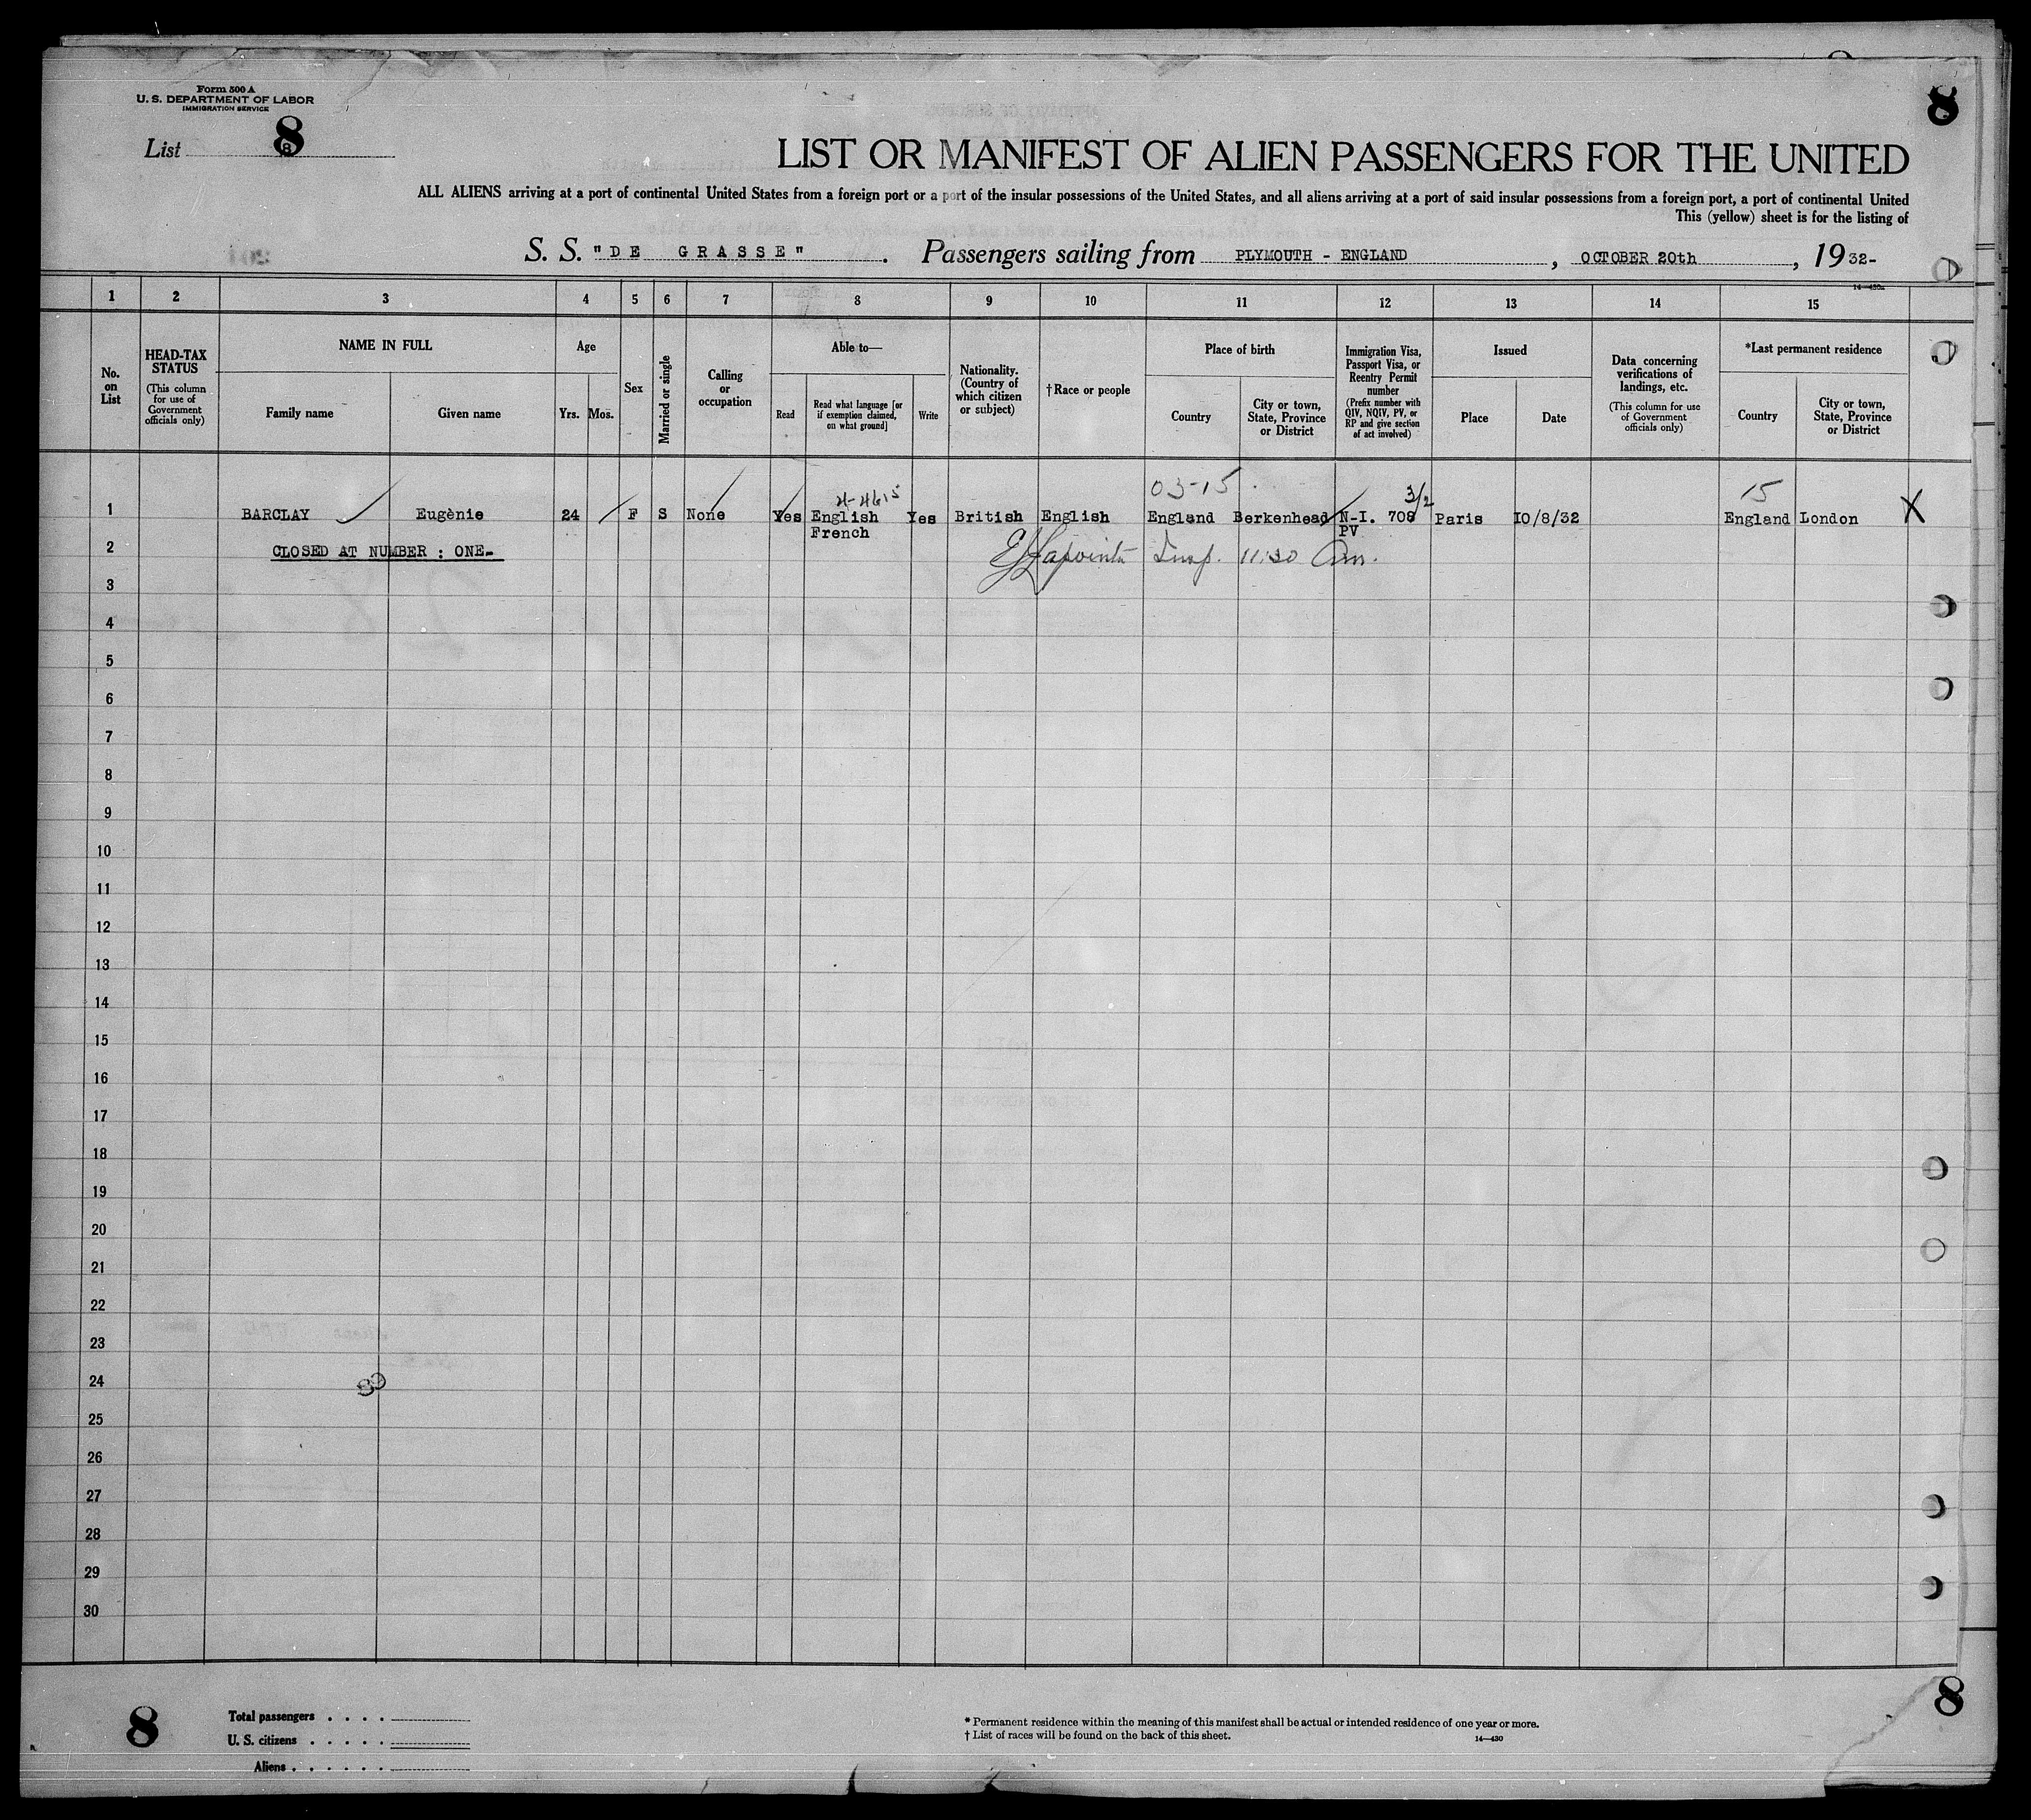 Form 500 A
U. S. DEPARTMENT OF LABOR
IMMIGRATION SERVICE
8
List 8
8
LIST OR MANIFEST OF ALIEN PASSENGERS FOR THE UNITED
ALL ALIENS arriving at a port of continental United States from a foreign port or a port of the insular possessions of the United States, and all aliens arriving at a port of said insular possessions from a foreign port, a port of continental United
This (yellow) sheet is for the listing of
S. S. "DE GRASSE". Passengers sailing from PLYMOUTH - ENGLAND, OCTOBER 20th, 1932-
1 2 3 4 5 6 7 8 9 10 11 12 13 14 15
No. on List
HEAD-TAX STATUS
(This column for use of Government officials only)
NAME IN FULL
Family name
Given name
Age
Yrs.
Mos.
Sex
Married or single
Calling or occupation
Able to—
Read
Read what language [or if exemption claimed, on what ground]
Write
Nationality. (Country of which citizen or subject)
†Race or people
Place of birth
Country
City or town, State, Province or District
Immigration Visa, Passport Visa, or Reentry Permit number
(Prefix number with QIV, NQIV, PV, or RP and give section of act involved)
Issued
Place
Date
Data concerning verifications of landings, etc.
(This column for use of Government officials only)
*Last permanent residence
Country
City or town, State, Province or District
03-15 3/2 15
1 BARCLAY Eugènie 24 F S None Yes English Yes British English England Berkenhead N-I. 708 Paris 10/8/32 England London X
French PV
2 CLOSED AT NUMBER : ONE- Lapointe Insp. 11:30 Am.
3
4
5
6
7
8
9
10
11
12
13
14
15
16
17
18
19
20
21
22
23
24
25
26
27
28
29
30
8
8
Total passengers . . . .
U. S. citizens . . . . .
Aliens . . . . . .
* Permanent residence within the meaning of this manifest shall be actual or intended residence of one year or more.
† List of races will be found on the back of this sheet.
14—430